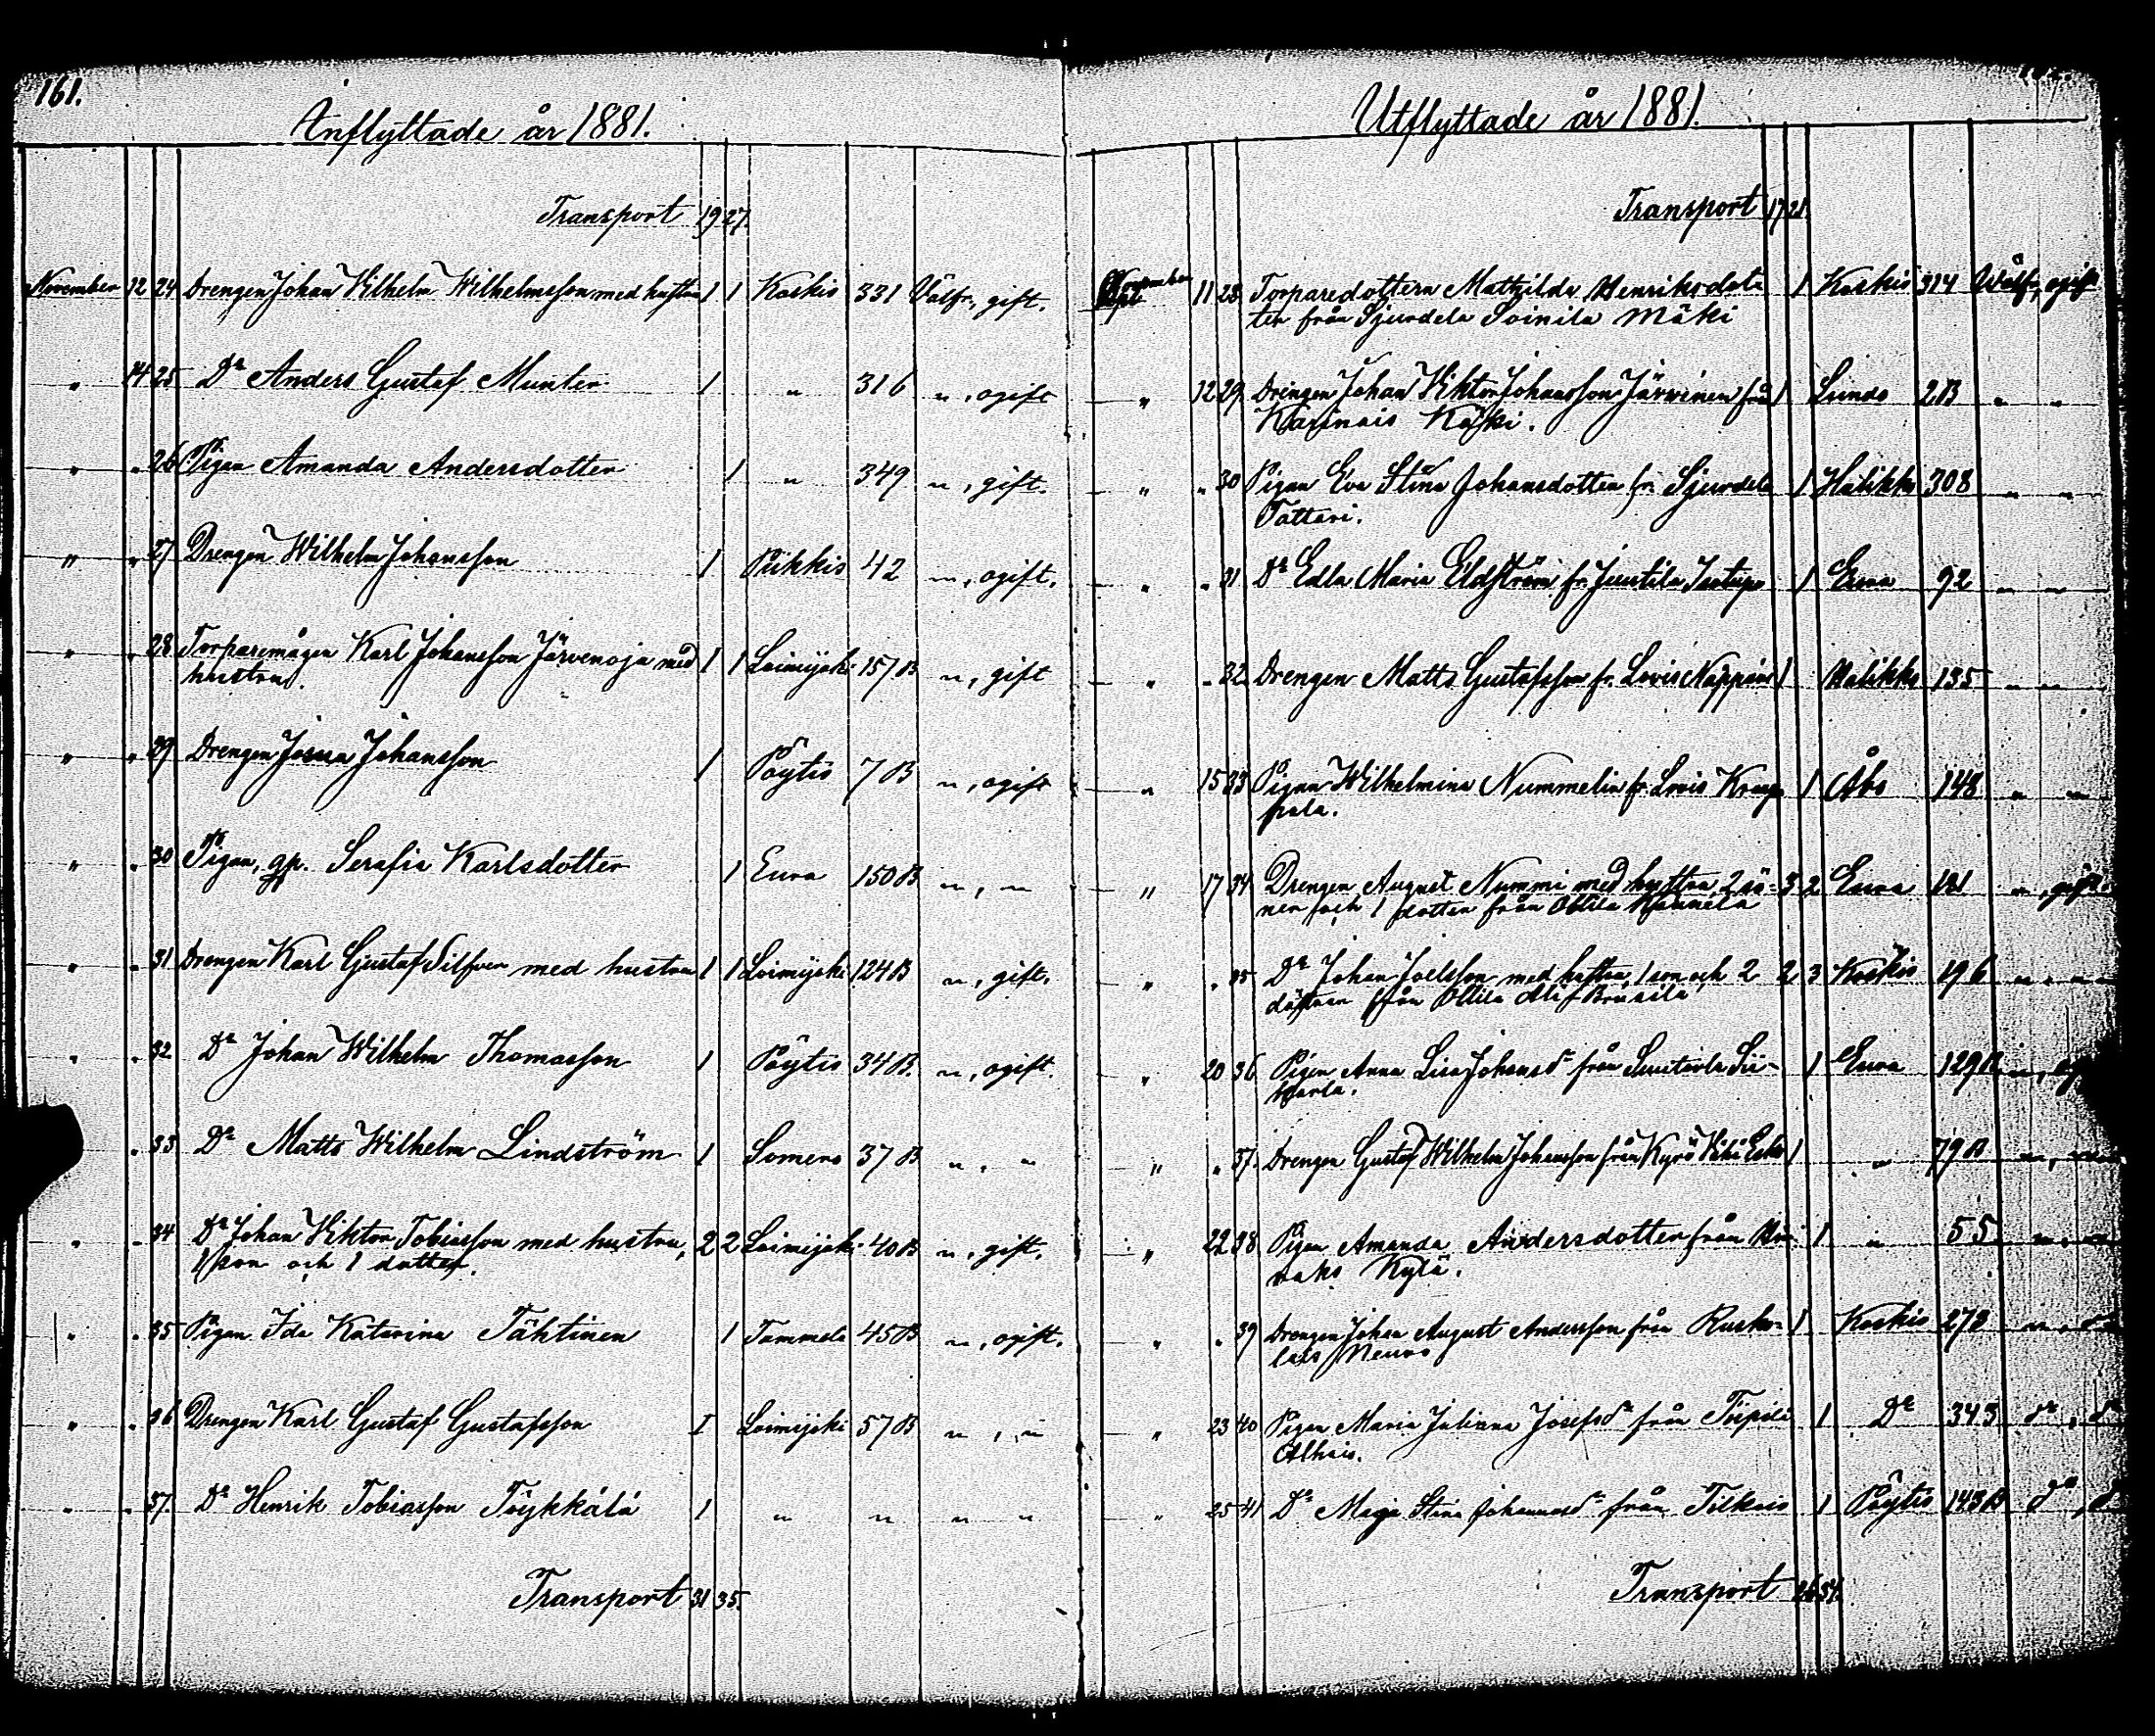 161.
Inflyttade år 1881.
Transport 19 27.
November 12 24 Drengen Johan Vilhelm Wilhelmsson med hustru 1 1 Koskis 331 Välfr., gift.
" 14 25 Do Anders Gustaf Munter 1 " 316 ", ogift
" " 26 Pigan Amanda Andersdotter 1 " 349 ", gift.
" " 27 Drengen Wilhelm Johansson 1 Pikkis 42 ", ogift.
" " 28 Torparemågen Karl Johansson Järvenoja med 1 1 Loimijoki 157 B ", gift
hustru.
" " 29 Drengen Josua Johansson 1 Pöytis 7 B ", ogift
" " 30 Pigan, gp. Serafia Karlsdotter 1 Eura 150 B ", "
" " 31 Drengen Karl Gustaf Silfver med hustru 1 1 Loimijoki 124 B ", gift.
" " 32 Do Johan Wilhelm Thomasson 1 Pöytis 34 B. ", ogift.
" 33 Do Matts Wilhelm Lindström 1 Somero 37 B ", "
" " 34 Do Johan Viktor Tobiasson med hustru, 2 2 Loimijoki 40 B ", gift.
1 son och 1 dotter.
" " 35 Pigan Ida Katarina Tähtinen 1 Tammela 45 B ", ogift.
" " 36 Drengen Karl Gustaf Gustafsson 1 Loimijoki 57 B ", "
" " 37. Do Henrik Tobiasson Töykkälä 1 " " " "
Transport 31 35.
Utflyttade år 1881.
Transport 17 21.
November 11 28 Torparedottern Mathilda Henriksdot- 1 Koskis 314 Wälfr, ogift
ter från Sjurdela Soinila Mäki
" 12 29 Drengen Johan Viktor Johansson Järvinen från 1 Lundo 2 B " "
Karinais Käski.
" " 30 Pigan Eva Stina Johansdotter fr. Sjurdela 1 Halikko 308 " "
Tattari.
" " 31 Do Edla Maria Eldström fr. Juntila Isotupa 1 Eura 92 " "
" " 32 Drengen Matts Gustafsson fr. Lovis 1 Halikko 135 " "
" 15 33 Pigan Wilhelmina Nummelin fr. Lovis 1 Åbo 148 " "
pala.
" 17 34 Drengen August Nummi med hustru, 2 sö- 3 2 Eura 121 ", gift.
ner och 1 dotter från Ollila
" " 35 Do Johan Joelsson med hustru, 1 son och 2 2 3 Koskis 196 ", "
döttrar från Ollila
" 20 36 Pigan Anna Lisa Johansdr från 1 Eura 129 B ",
" " 37. Drengen Gustaf Wilhelm Johansson från Kyrö 1 " 79 B ", "
" 22 38 Pigan Amanda Andersdotter från 1 " 55 ", "
Kylä.
" " 39 Drengen Johan August Andersson från Rusko- 1 Koskis 272 ", "
lais
" 23 40 Pigan Maria Juliana Josefsdr från 1 Do 343 do, do
" 25 41 Do Maja Stina Johansdr från Tilkais 1 Pöytis 143 B do,
Transport